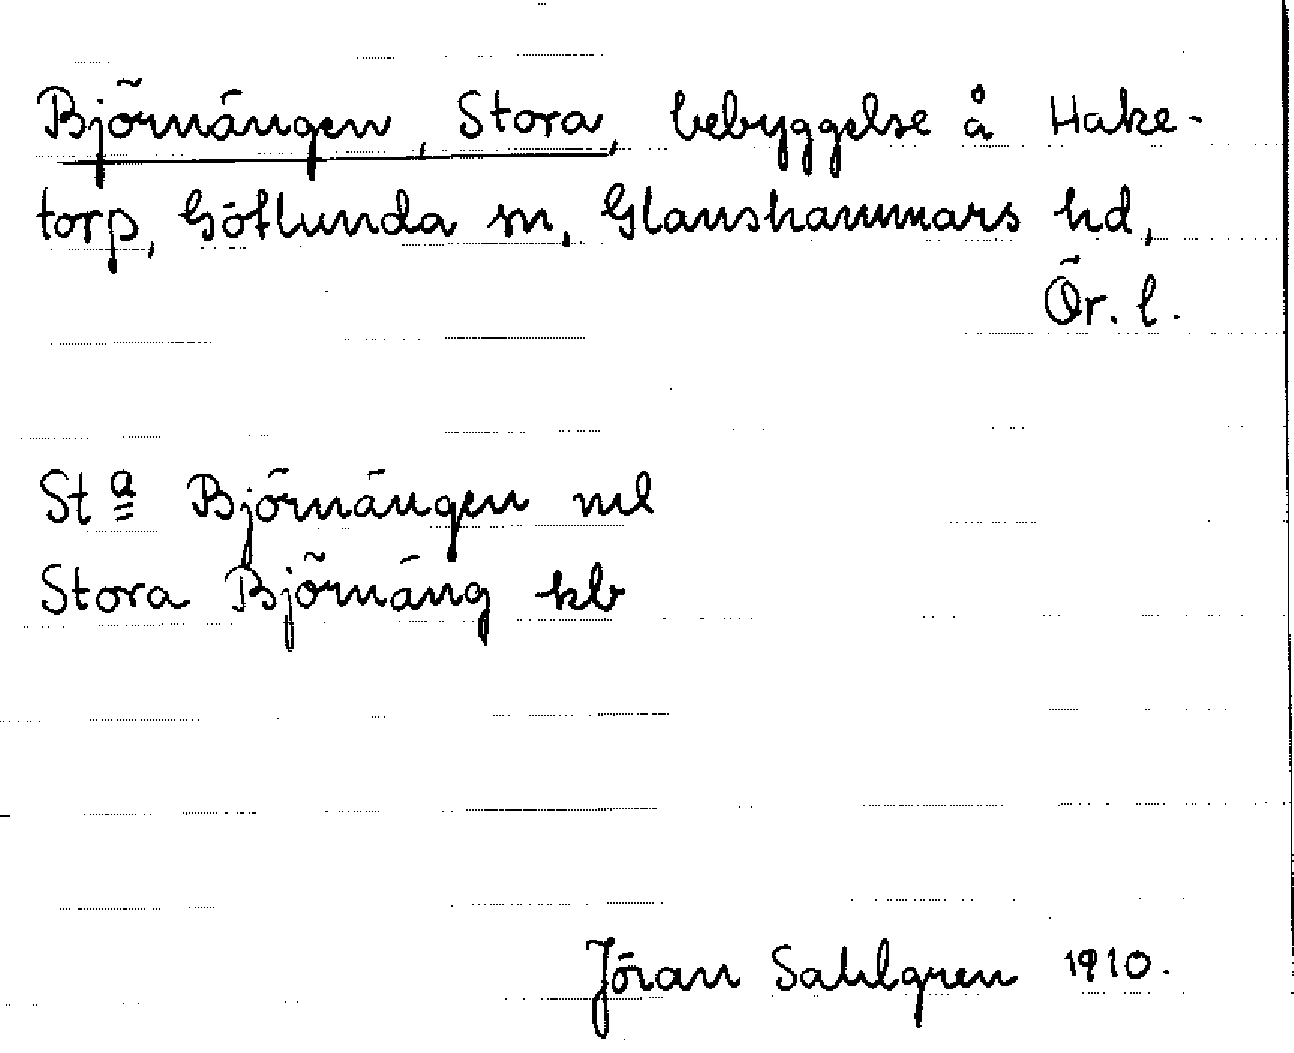 Björnängen, Stora, bebyggelse å Hake-
torp, Götlunda sn, Glanshammars hd,
Ör. l.
St a Björnängen ml
Stora Björnäng kb
Jöran Sahlgren 1910.